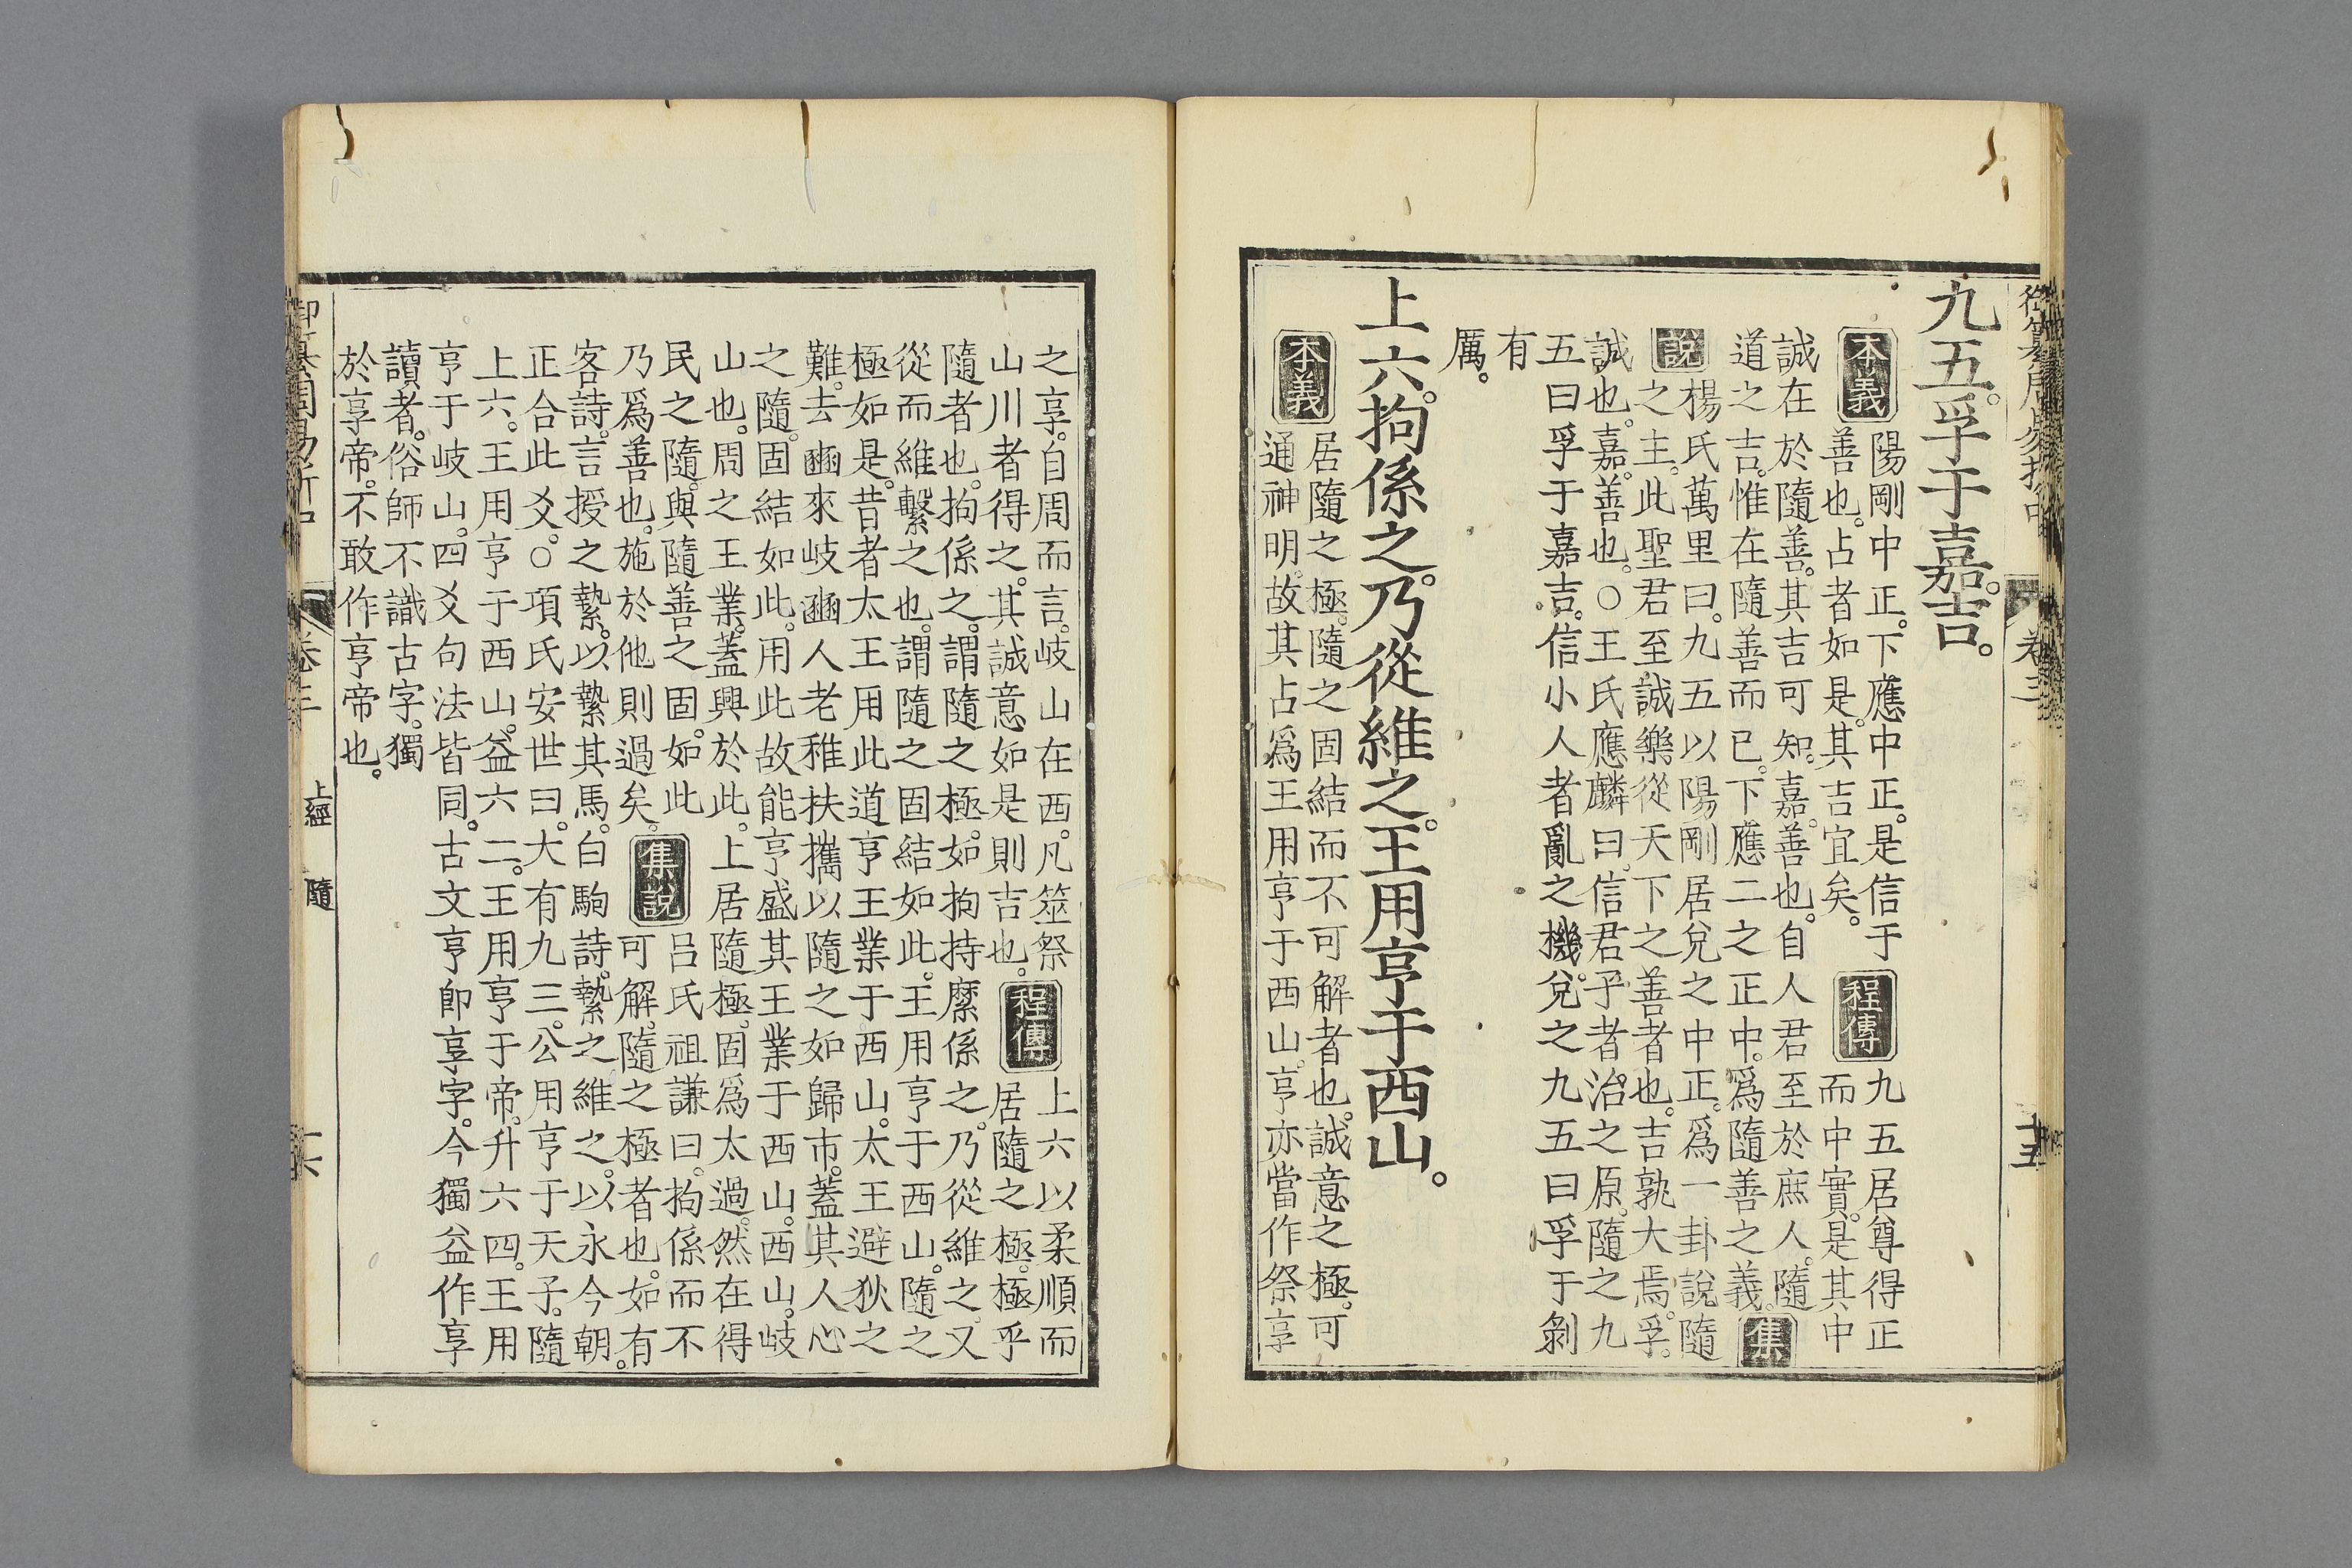 九五。孚于嘉。吉。
本義
陽剛中正。下應中正。是信于
善也。占者如是。其吉宜矣。
程傳
九五居尊得正
而中實。是其中
誠在於隨善。其吉可知。嘉。善也。自人君至於庶人。隨
道之吉。惟在隨善而已。下應二之正中。爲隨善之義。集
說
楊氏萬里曰。九五以陽剛居兌之中正。爲一卦說隨
之主。此聖君至誠樂從天下之善者也。吉孰大焉。孚。
誠也。嘉。善也。○王氏應麟曰。信君子者。治之原。隨之九
五曰孚于嘉吉。信小人者。亂之機。兌之九五曰孚于剝
有
厲。
上六。拘係之。乃從維之。王用亨于西山。
本義
居隨之極。隨之固結而不可解者也。誠意之極。可
通神明。故其占爲王用亨于西山。亨亦當作祭享
之享。自周而言。岐山在西。凡筮祭
山川者得之。其誠意如是則吉也。
程傳
上六以柔順而
居隨之極。極乎
隨者也。拘係之。謂隨之極。如拘持縻係之。乃從維之。又
從而維繫之也。謂隨之固結如此。王用亨于西山。隨之
極如是。昔者太王用此道亨王業于西山。太王避狄之
難。去豳來岐豳人老稚扶攜以隨之如歸市。蓋其人心
之隨。固結如此。用此故能亨盛其王業于西山。西山。岐
山也。周之王業。蓋興於此。上居隨極。固爲太過。然在得
民之隨。與隨善之固。如此
乃爲善也。施於他則過矣。
集說
呂氏祖謙曰。拘係而不
可解。隨之極者也。如有
客詩。言授之縶。以縶其馬。白駒詩。縶之維之。以永今朝。
正合此爻。○項氏安世曰。大有九三。公用亨于天子。隨
上六。王用亨于西山。益六二。王用享于帝。升六四。王用
亨于岐山。四爻句法皆同。古文亨卽享字。今獨益作享
讀者。俗師不識古字。獨
於享帝。不敢作亨帝也。
上經 隨